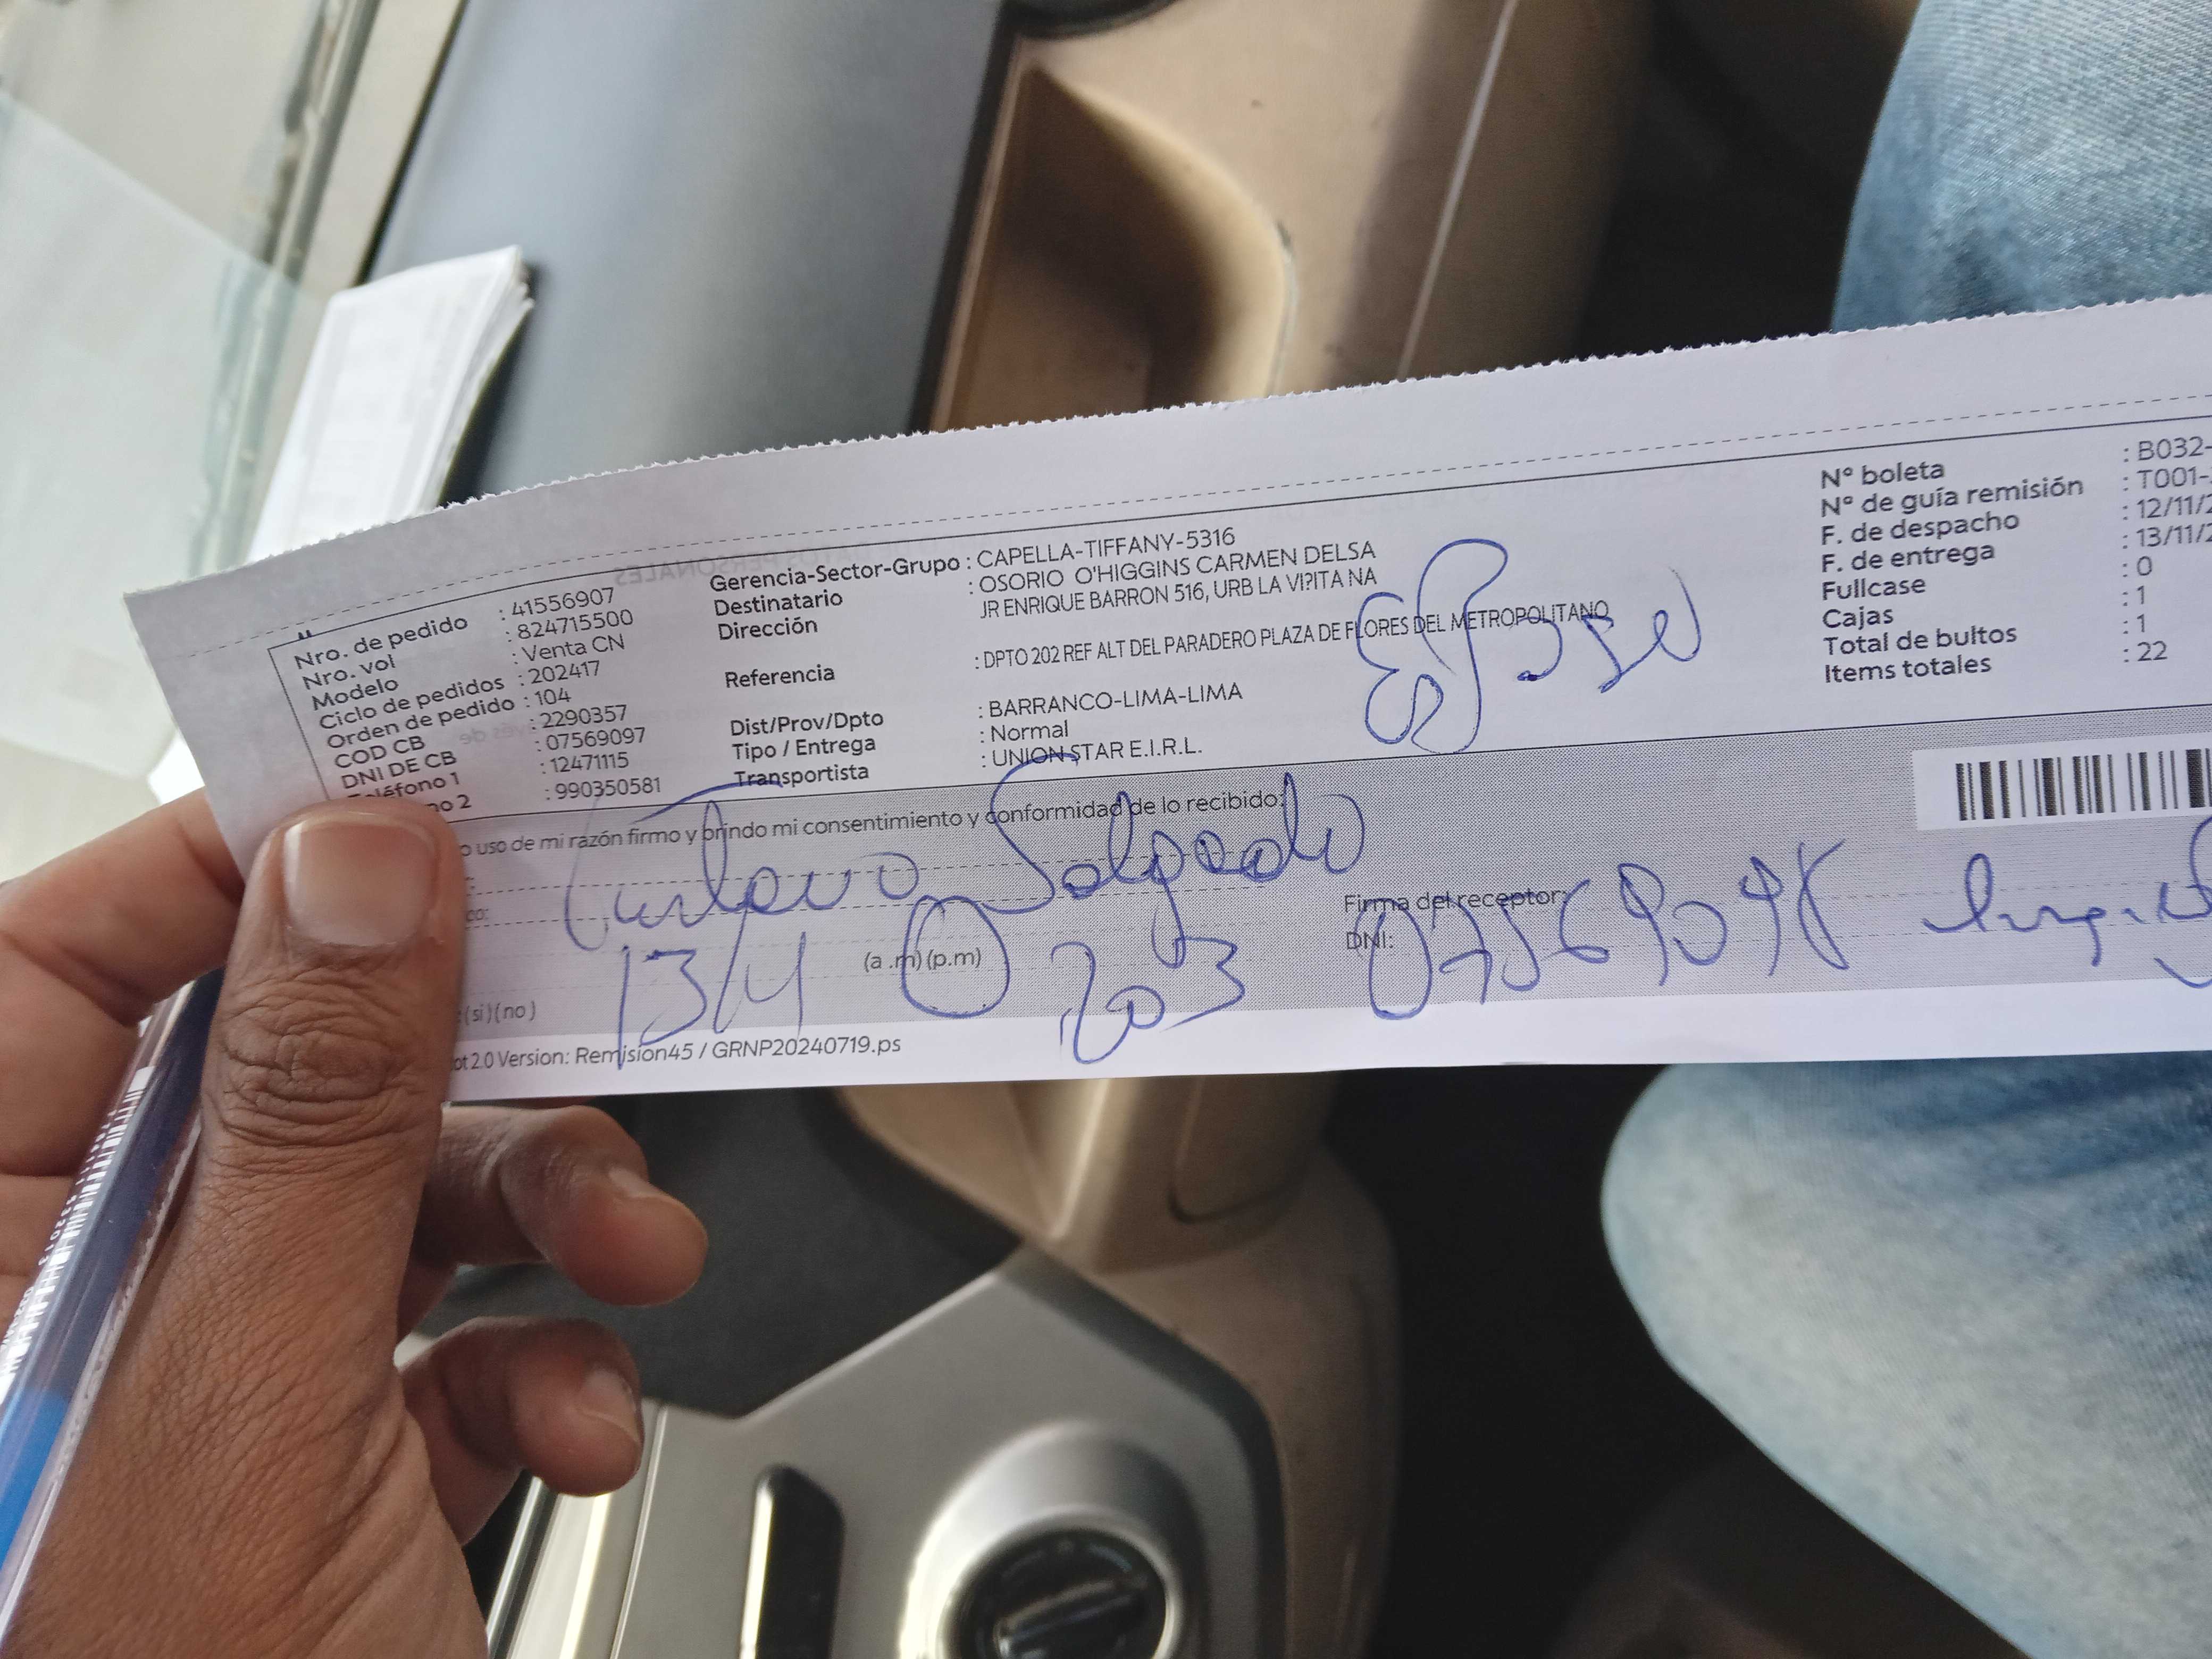 Nro. de pedido : 41556907
Nro. vol : 824715500
Modelo : Venta CN
Ciclo de pedidos : 202417
Orden de pedido : 104
COD CB : 2290357
DNI DE CB : 07569097
Teléfono 1 : 12471115
no 2 : 990350581
Gerencia-Sector-Grupo : CAPELLA-TIFFANY-5316
Destinatario : OSORIO O'HIGGINS CARMEN DELSA
Dirección JR ENRIQUE BARRON 516, URB LA VI?ITA NA
Referencia : DPTO 202 REF ALT DEL PARADERO PLAZA DE FLORES DEL METROPOLITANO
Dist/Prov/Dpto : BARRANCO-LIMA-LIMA
Tipo / Entrega : Normal
Transportista : UNION STAR E.I.R.L.
Nº boleta : B032-
Nº de guía remisión : T001-
F. de despacho : 12/11/2
F. de entrega : 13/11/2
Fullcase : 0
Cajas : 1
Total de bultos : 1
Items totales : 22
Esposo
o uso de mi razón firmo y brindo mi consentimiento y conformidad de lo recibido:
Gustavo Salgado
co:
Firma del receptor:
13/11 (a .m) (p.m) 203 DNI: 07569098
: (si) (no)
ot 2.0 Version: Remision45 / GRNP20240719.ps